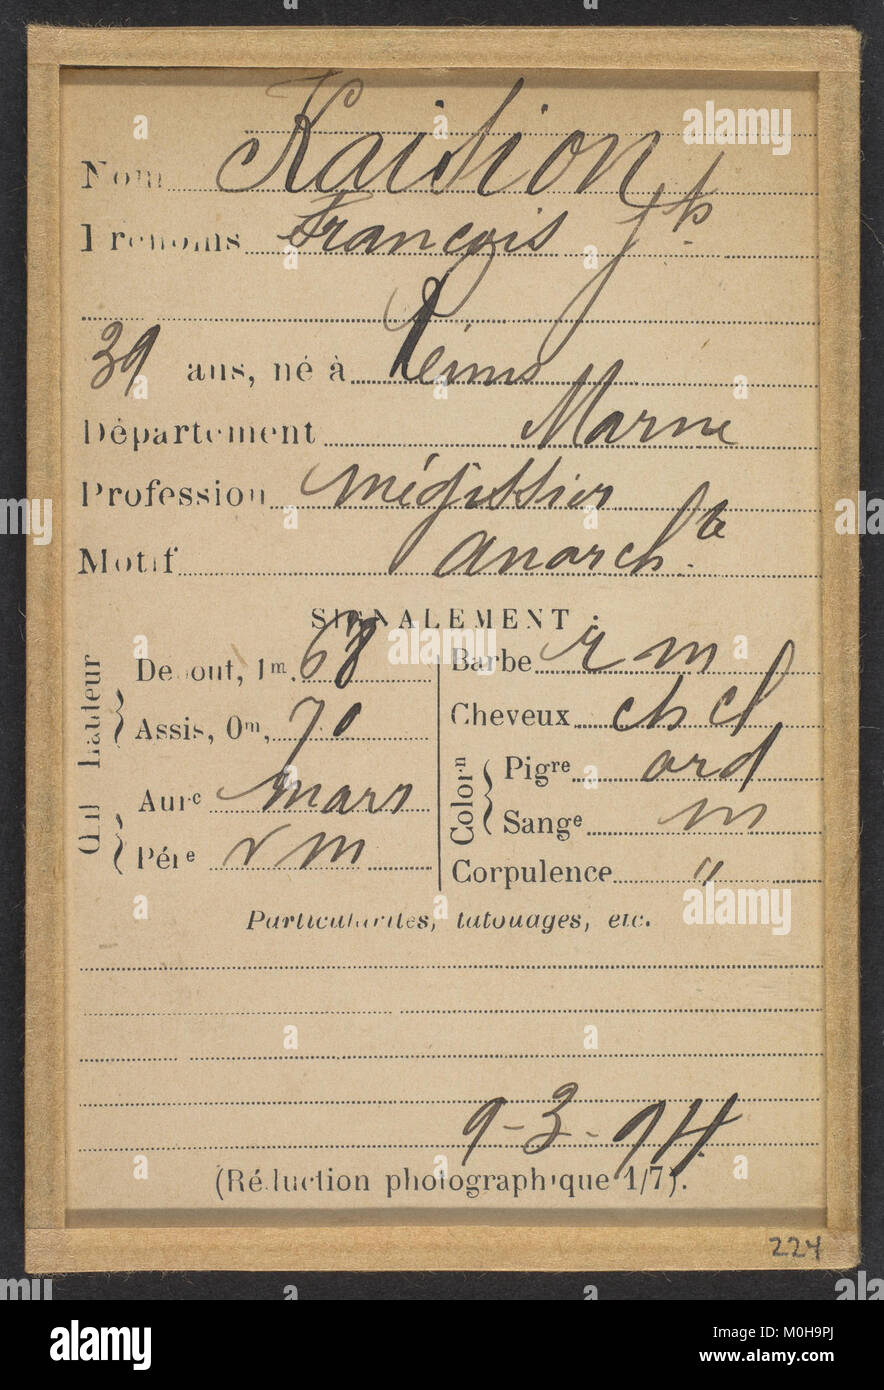 Nom Kaision
Prénoms François Jph
39 ans, né à Reims
Département Marne
Profession mégissier
Motif Anarch.te
SIGNALEMENT :
Hauteur
Debout, 1m. 68
Assis, 0m, 90
Œil
Aure mars
Pére v m
Barbe r m
Cheveux ch cl
Colorn
Pigre ord
Sange m
Corpulence "
Particularités, tatouages, etc.
9-3-94
(Réduction photographique 1/7).
224
alamy
M0H9PJ
www.alamy.com